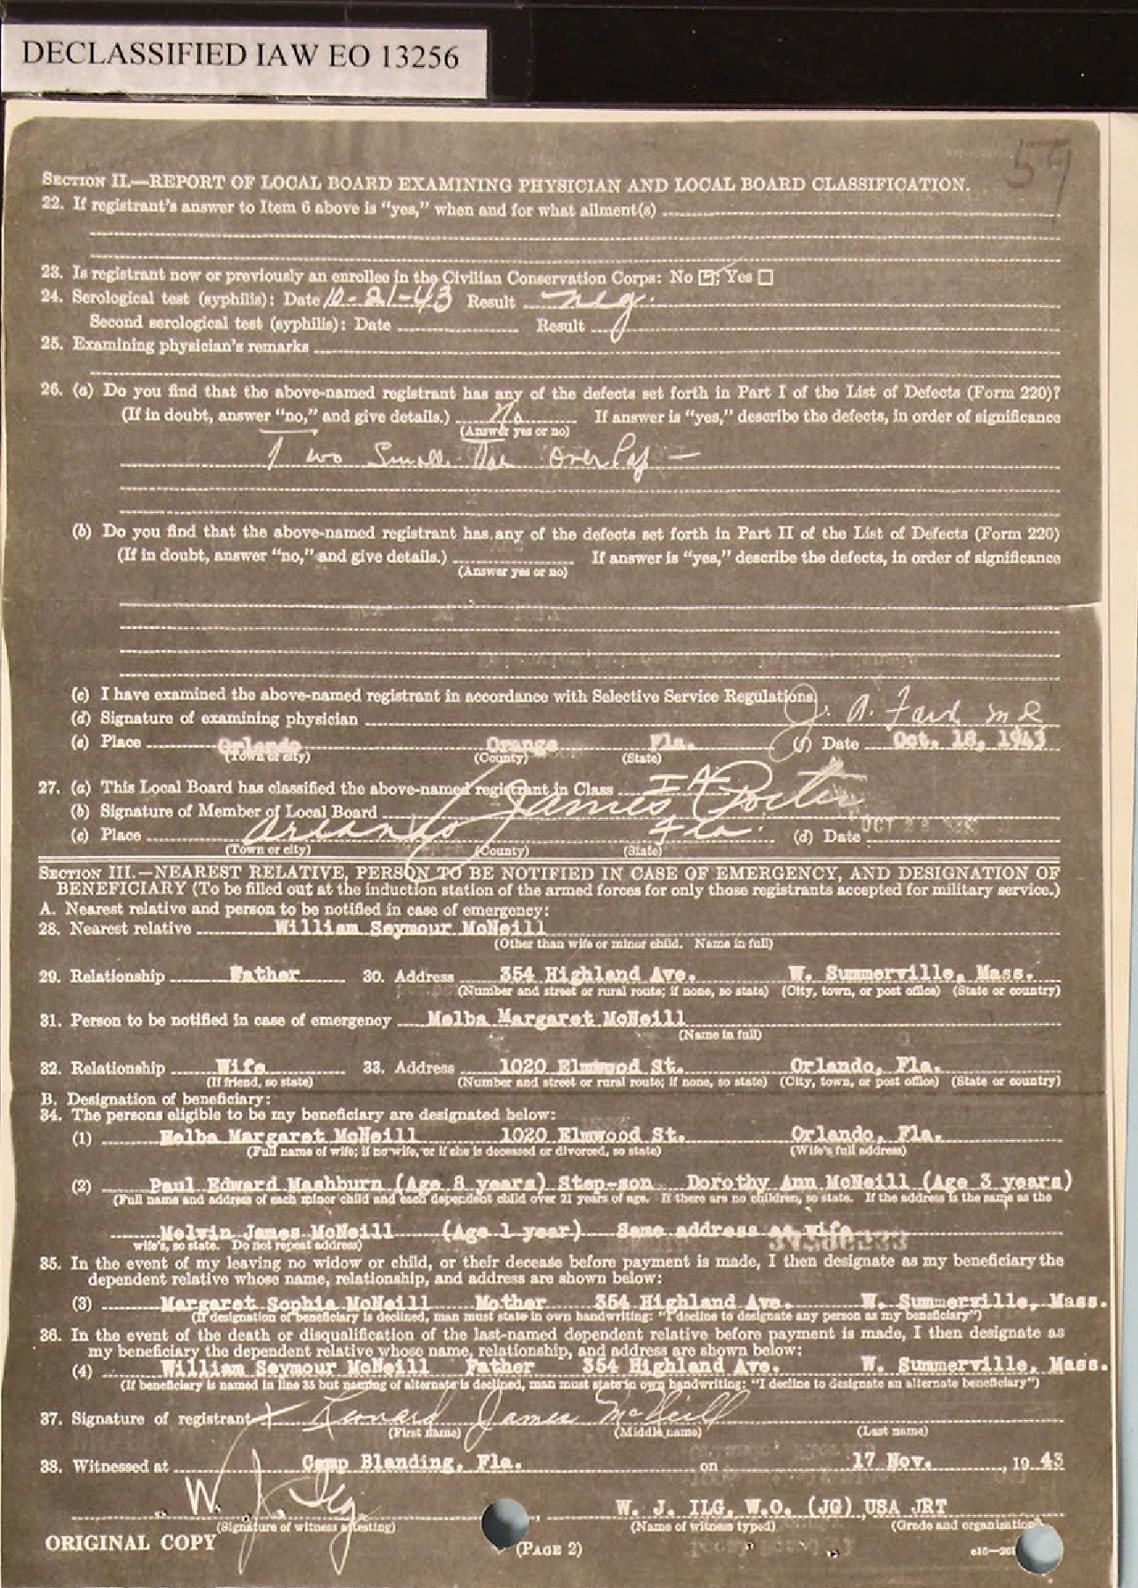 DECLASSIFIED IAW EO 13256
59
SECTION II.—REPORT OF LOCAL BOARD EXAMINING PHYSICIAN AND LOCAL BOARD CLASSIFICATION.
22. If registrant's answer to Item 6 above is "yes," when and for what ailment(s)
23. Is registrant now or previously an enrollee in the Civilian Conservation Corps: No ☑; Yes ☐
24. Serological test (syphilis): Date 10-21-43 Result neg.
Second serological test (syphilis): Date Result
25. Examining physician's remarks
26. (a) Do you find that the above-named registrant has any of the defects set forth in Part I of the List of Defects (Form 220)?
(If in doubt, answer "no," and give details.) No If answer is "yes," describe the defects, in order of significance
(Answer yes or no)
Two Small Toe Over Lap —
(b) Do you find that the above-named registrant has any of the defects set forth in Part II of the List of Defects (Form 220)
(If in doubt, answer "no," and give details.) If answer is "yes," describe the defects, in order of significance
(Answer yes or no)
(c) I have examined the above-named registrant in accordance with Selective Service Regulations.
(d) Signature of examining physician J. A.
(e) Place Orlando Orange Fla. (f) Date Oct. 18, 1943
(Town or city) (County) (State)
27. (a) This Local Board has classified the above-named registrant in Class I A
(b) Signature of Member of Local Board James Porter
(c) Place Orlando Fla. (d) Date OCT
(Town or city) (County) (State)
SECTION III.—NEAREST RELATIVE, PERSON TO BE NOTIFIED IN CASE OF EMERGENCY, AND DESIGNATION OF
BENEFICIARY (To be filled out at the induction station of the armed forces for only those registrants accepted for military service.)
A. Nearest relative and person to be notified in case of emergency:
28. Nearest relative William Seymour McNeill
(Other than wife or minor child. Name in full)
29. Relationship Father 30. Address 354 Highland Ave. W. Summerville, Mass.
(Number and street or rural route; if none, so state) (City, town, or post office) (State or country)
31. Person to be notified in case of emergency Melba Margaret McNeill
(Name in full)
32. Relationship Wife 33. Address 1020 Elmwood St. Orlando, Fla.
(If friend, so state) (Number and street or rural route; if none, so state) (City, town, or post office) (State or country)
B. Designation of beneficiary:
34. The persons eligible to be my beneficiary are designated below:
(1) Melba Margaret McNeill 1020 Elmwood St. Orlando, Fla.
(Full name of wife; if no wife, or if she is deceased or divorced, so state) (Wife's full address)
(2) Paul Edward Mashburn (Age 8 years) Step-son Dorothy Ann McNeill (Age 3 years)
(Full name and address of each minor child and each dependent child over 21 years of age. If there are no children, so state. If the address is the same as the
Melvin James McNeill (Age 1 year) Same address as wife
wife's, so state. Do not repeat address)
35. In the event of my leaving no widow or child, or their decease before payment is made, I then designate as my beneficiary the
dependent relative whose name, relationship, and address are shown below:
(3) Margaret Sophia McNeill Mother 354 Highland Ave. W. Summerville, Mass.
(If designation of beneficiary is declined, man must state in own handwriting: "I decline to designate any person as my beneficiary")
36. In the event of the death or disqualification of the last-named dependent relative before payment is made, I then designate as
my beneficiary the dependent relative whose name, relationship, and address are shown below:
(4) William Seymour McNeill Father 354 Highland Ave. W. Summerville, Mass.
(If beneficiary is named in line 35 but naming of alternate is declined, man must state in own handwriting: "I decline to designate an alternate beneficiary")
37. Signature of registrant x Leonard James McNeill
(First name) (Middle name) (Last name)
38. Witnessed at Camp Blanding, Fla. on 17 Nov. , 19 43
W. J. Ilg W. J. ILG, W.O. (JG) USA JRT
(Signature of witness attesting) (Name of witness typed) (Grade and organization)
ORIGINAL COPY (PAGE 2)